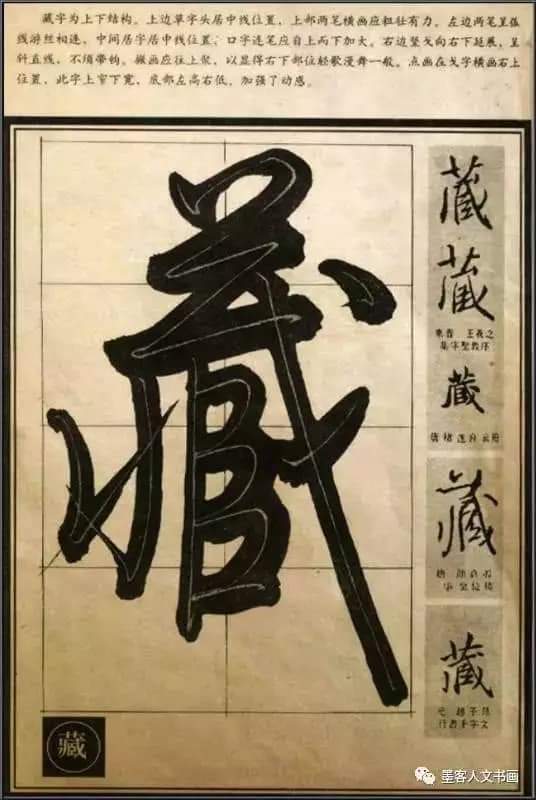 藏字为上下结构。上边草字头居中线位置,上部两笔横画应粗壮有力。左边两笔呈弧
线游丝相连,中间居字居中线位置,口字连笔应自上而下加大。右边竖戈向右下延展,呈
斜直线,不须带钩。撇画应往上俬,以显得右下部位轻歌漫舞一般。点画在戈字横画右上
位置,此字上窄下宽,底部左高右低,加强了动感。
藏
藏
藏
東晋 王羲之
集字聖教序
藏
唐
藏
唐 顔真卿
争座位稿
藏
元 趙子昂
行書千字文
藏
墨客人文书画